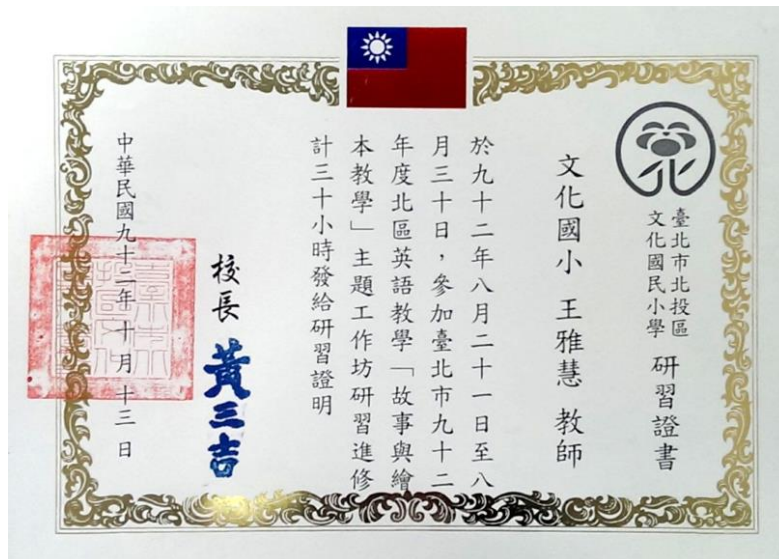 臺北市北投區
文化國民小學
研習證書
文化國小 王雅慧 教師
於九十二年八月二十一日至八
月三十日，參加臺北市九十二
年度北區英語教學「故事與繪
本教學」主題工作坊研習進修
計三十小時發給研習證明
校長 黃三吉
中華民國九十二年十月十三日